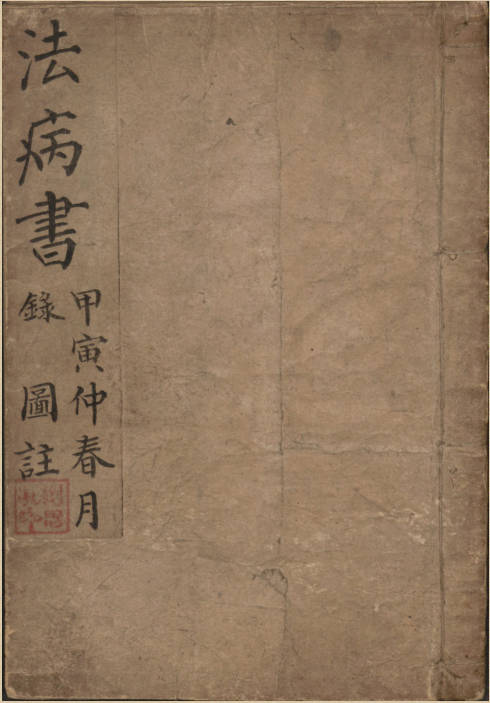 法病書
甲寅仲春月
錄圖註